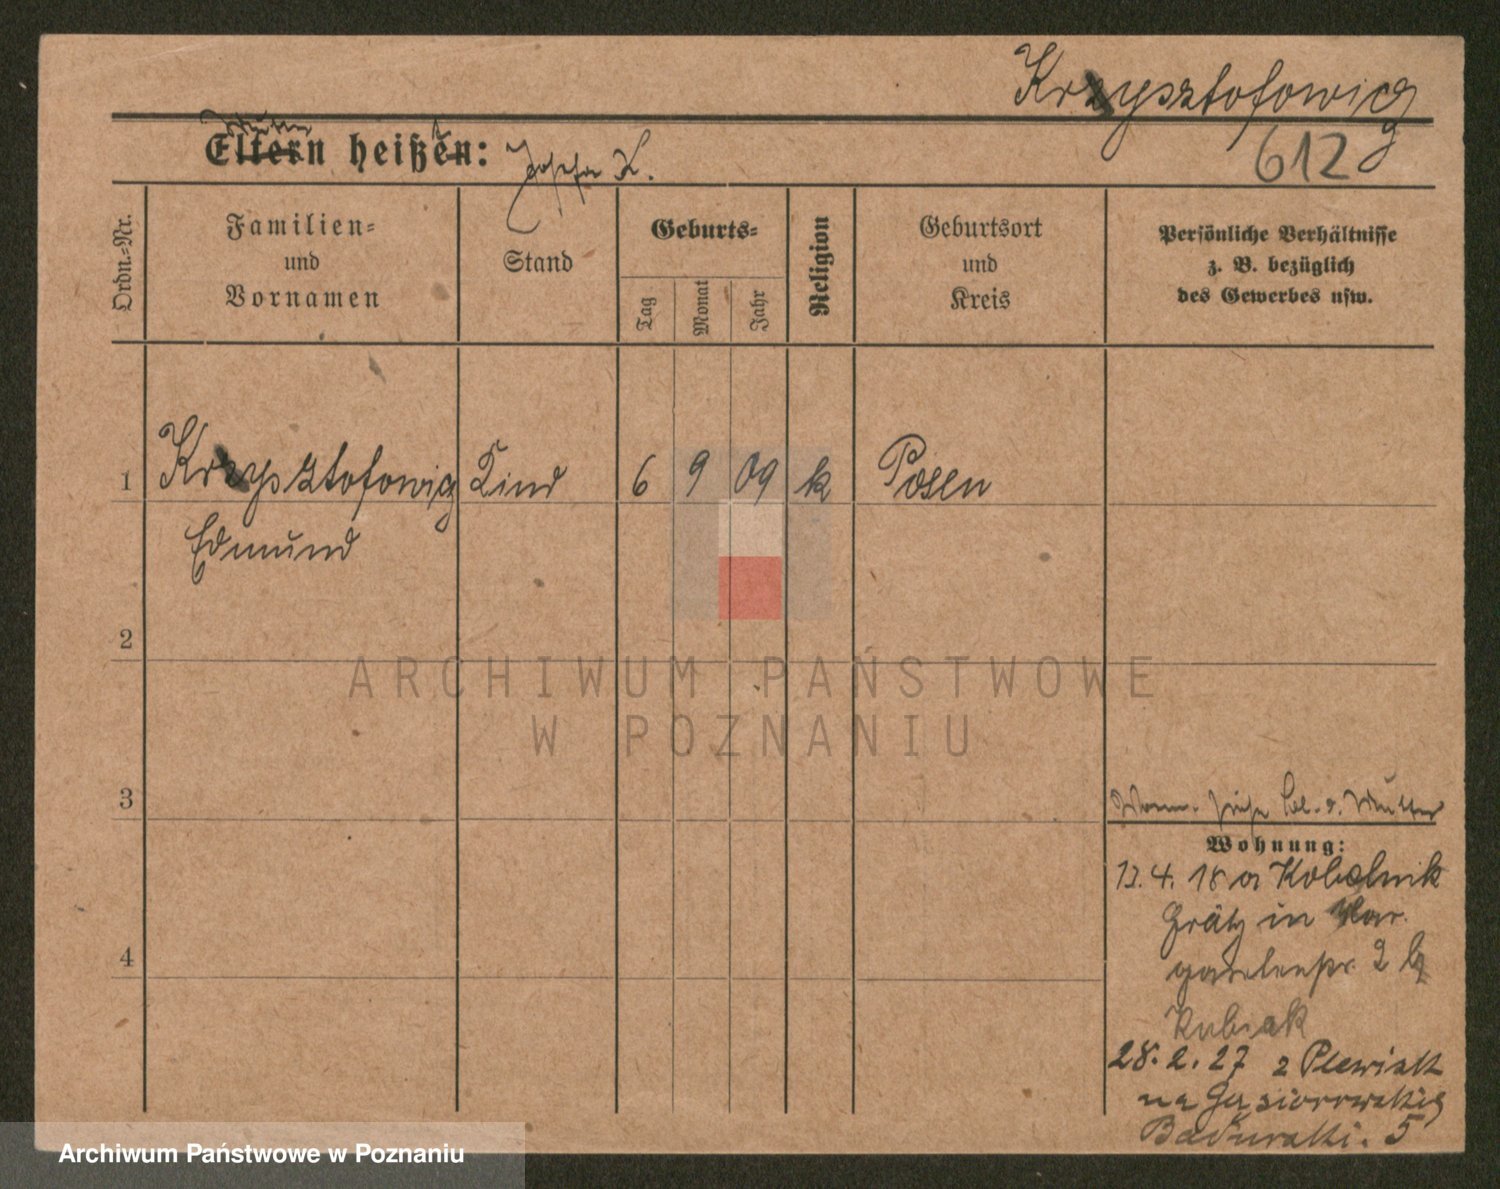 Krzysztofowicz
612
Mutter
Eltern heißen: Josefa K.
Ordn.-Nr.
Familien-
und
Vornamen
Stand
Geburts-
Tag
Monat
Jahr
Religion
Geburtsort
und
Kreis
Persönliche Verhältnisse
z. B. bezüglich
des Gewerbes usw.
1 Krzysztofowicz Kind 6 9 09 k Posen
Edmund
2
3
4
bei d. Mutter
Wohnung:
4. 18 a Kobelnik
Grätz in
2 b
Kubiak
28. 2. 27 z Plewisk
na Gąsiorowskich
5
ARCHIWUM PAŃSTWOWE
W POZNANIU
Archiwum Państwowe w Poznaniu